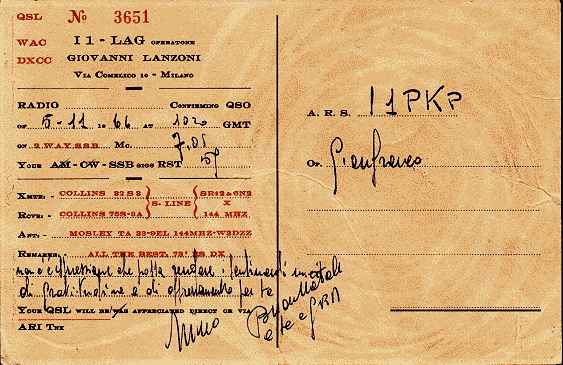 QSL No 3651
WAC I1 - LAG OPERATORE
DXCC GIOVANNI LANZONI
VIA COMELICO 10 - MILANO
RADIO CONFIRMING QSO
OF 5-11 1966 AT 1020 GMT
ON 2.W.A.Y.S.S.B. MC. 7.05
YOUR AM-CW-SSB SIGS RST 59
XMTR: COLLINS 32S3
RCVR: COLLINS 75S-3A
S-LINE
SR42 & GN2
X
144 MHZ
ANT: MOSLEY TA 33-9EL 144MHZ-W3DZZ
REMARKS: ALL THE BEST. 73' ES DX
non c'è espressione che possa rendere i sentimenti
di gratitudine e di per te
YOUR QSL WILL BE/WAS APPRECIATED DIRECT OR VIA
ARI TNX
Buon Natale
a te e QRA
A. R. S. I1PKP
OP. Gianfranco